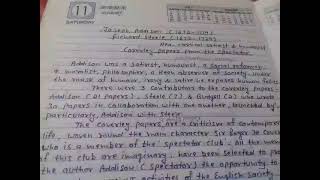 11
SATURDAY
Joseph Addison (1672-1719)
Richard Steele (1672-1729)
satirist & humourist
Coverley papers from the Spectator
Addison was a satirist, humourist, a social reformer
& moralist, philosopher, a keen observer of society. Under
the mask of humour, irony & satire he exposes human
There were 3 contributors to the coverley papers.
Addison ( papers), Steele (7) & Budgell (2) wrote
papers in collaboration with one another,
particularly, Addison with Steele.
The Coverley papers are a criticism of contemporary
life, woven round the main character Sir Roger De Coverley
who is a member of the 'spectator club'. All the members
of this club are imaginary, have been selected to
the author Addison (Spectator) the opportunity to
of the English Society